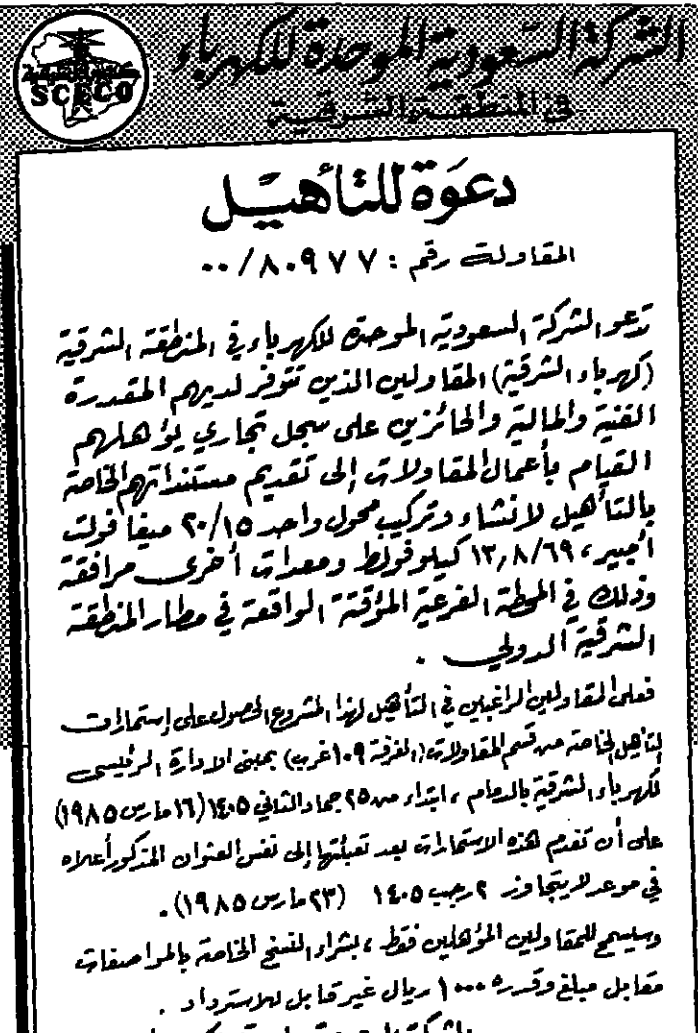 الشركة السعودية الموحدة للكهرباء
في المنطقة الشرقية
SCECO
دعوة للتأهيل
المقاولة رقم : ٠٠/٨٠٩٧٧
تدعو الشركة السعودية الموحدة للكهرباء في المنطقة الشرقية
(كهرباء الشرقية) المقاولين الذين تتوفر لديهم المقدرة
الفنية والمالية والحائزين على سجل تجاري يؤهلهم
القيام بأعمال المقاولات إلى تقديم مستنداتهم الخاصة
بالتأهيل لانشاء وتركيب محول واحد ٢٠/١٥ ميغا فولت
أمبير، ١٣,٨/٦٩ كيلو فولط ومعدات أخرى مرافقة
وذلك في المحطة الفرعية المؤقتة الواقعة في مطار المنطقة
الشرقية الدولي .
فعلى المقاولين الراغبين في التأهيل لهذا المشروع الحصول على إستمارات
التأهيل الخاصة من قسم المقاولات (الغرفة ١٠٩ غرب) بمبنى الادارة الرئيسي
لكهرباء الشرقية بالدمام ، ابتداء من ٢٥ جماد الثاني ١٤٠٥ (١٦ مارس ١٩٨٥)
على أن تقدم هذه الاستمارات بعد تعبئتها إلى نفس العنوان المذكور أعلاه
في موعد لايتجاوز ٢ رجب ١٤٠٥ (٢٣ مارس ١٩٨٥) .
وسيسمح للمقاولين المؤهلين فقط ، بشراء النسخ الخاصة بالمواصفات
مقابل مبلغ وقدره ١٠٠٠ ريال غير قابل للاسترداد .